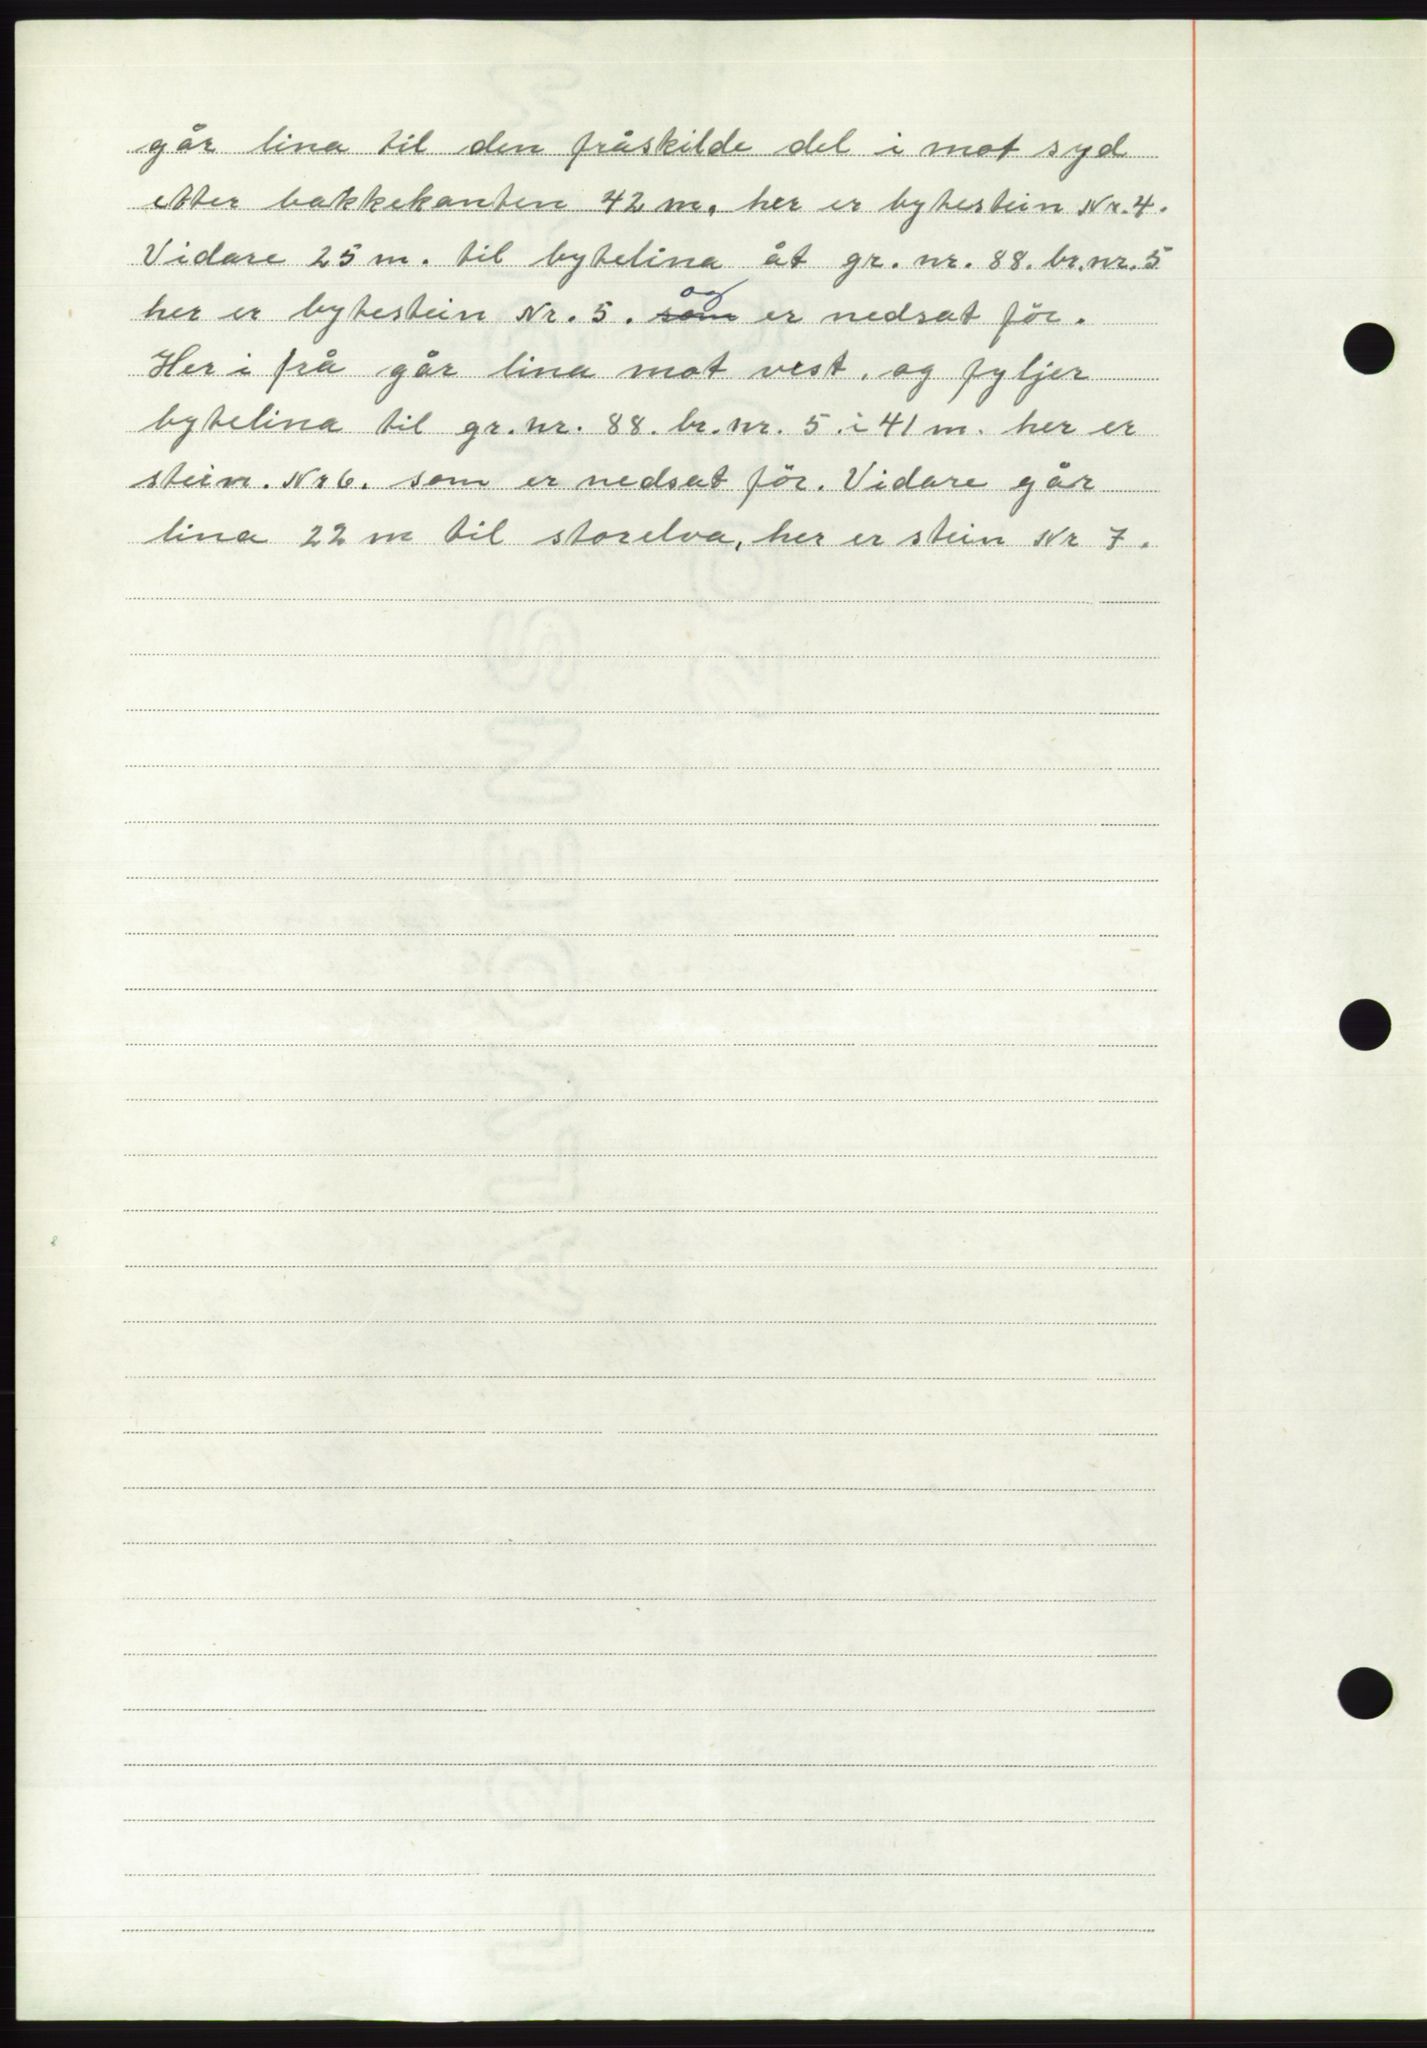 går lina til den fråskilde del i mot syd
etter bakkekanten 42 m. her er bytestein Nr. 4.
Vidare 25 m. til bytelina åt gr. nr. 88. br. nr. 5
her er bytestein Nr. 5. som og er nedsat för.
Her i frå går lina mot vest. og fyljer
bytelina til gr. nr. 88. br. nr. 5. i 41 m. her er
stein. Nr 6. som er nedsat för. Vidare går
lina 22 m til storelva, her er stein Nr 7.